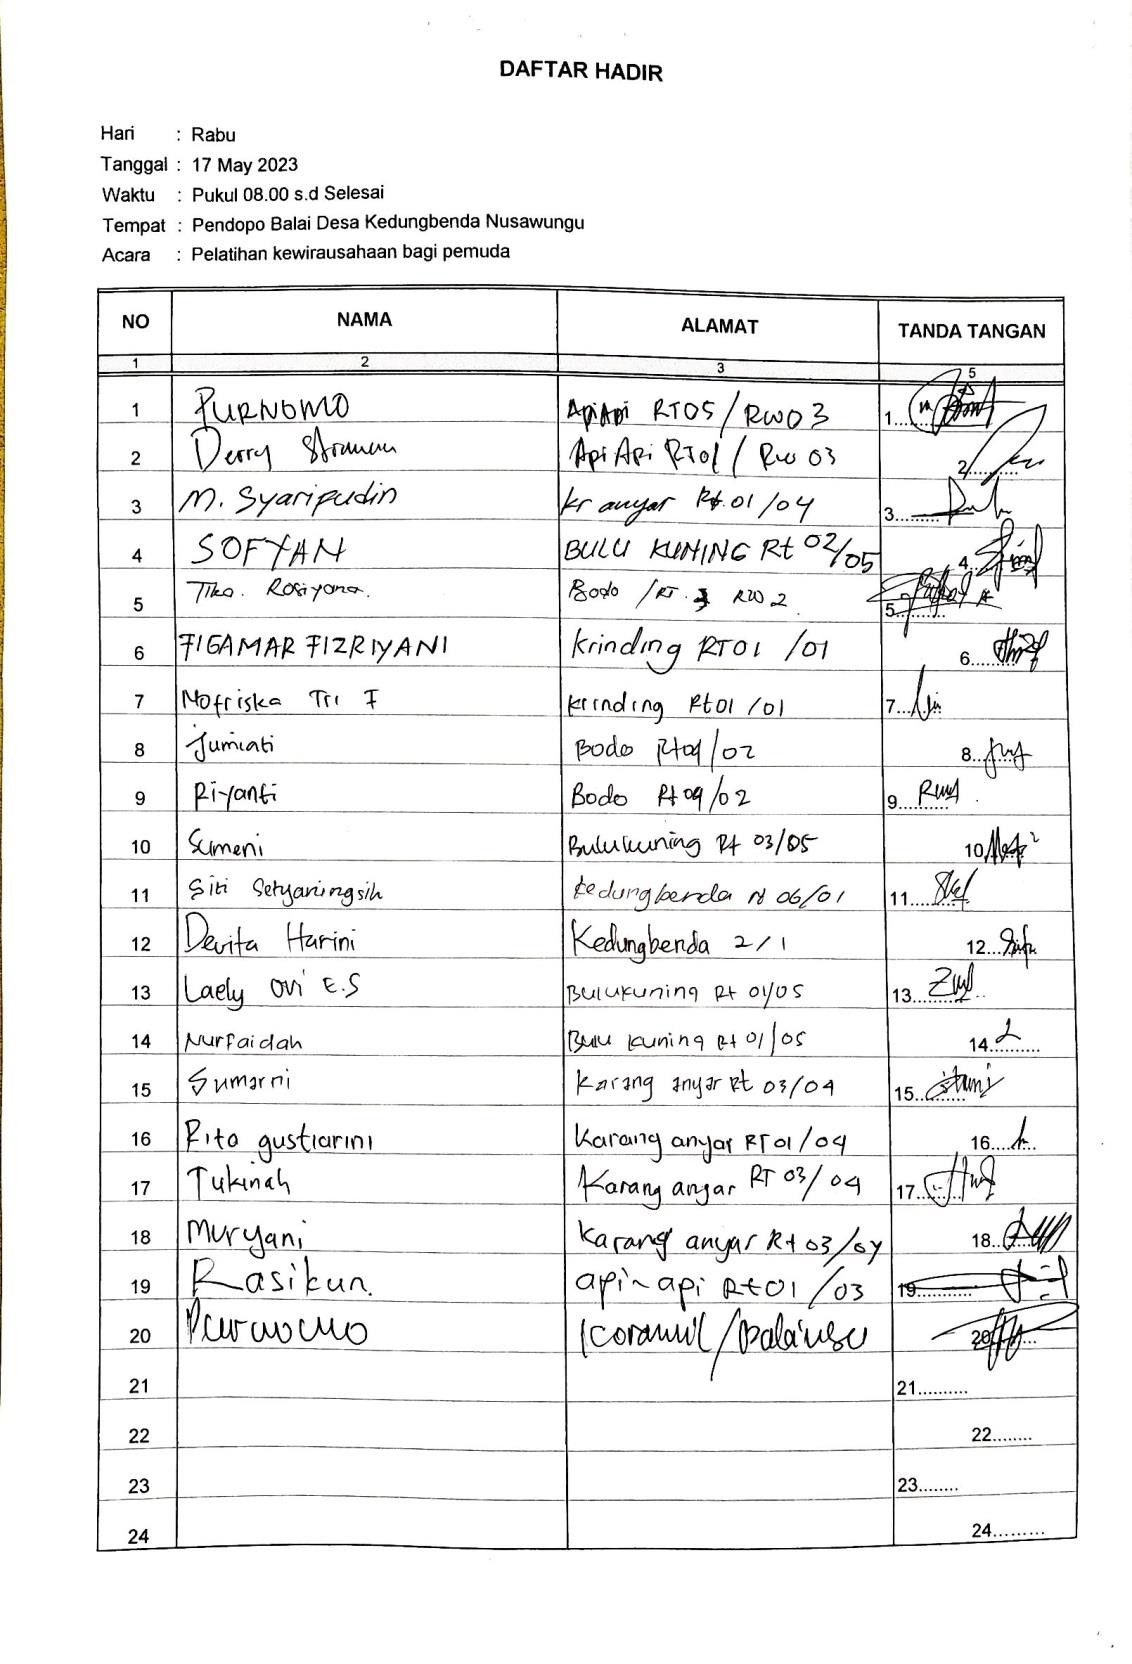 DAFTAR HADIR
Hari : Rabu
Tanggal : 17 May 2023
Waktu : Pukul 08.00 s.d Selesai
Tempat : Pendopo Balai Desa Kedungbenda Nusawungu
Acara : Pelatihan kewirausahaan bagi pemuda
NO NAMA ALAMAT TANDA TANGAN
1 2 3 5
1 PURNOMO ApiApi RT05/RW03 1.........
2 Derry ApiApi RT01/RW 03 2.........
3 M. Syaripudin kr anyar Rt.01/04 3.........
4 SOFYAN BULU KUNING Rt 02/05 4.........
5 Tika. Rosiyana. Bodo /RT. 3 RW 2 5.........
6 FIGAMAR FIZRIYANI Krinding RT01 /01 6.........
7 Nofriska Tri F krinding Rt01 /01 7.........
8 Jumiati Bodo Rt09/02 8.........
9 Riyanti Bodo Rt 09/02 9.........
10 Sumeni Bulukuning Rt 03/05 10.........
11 Siti Setyaningsih kedungbenda rt 06/01 11.........
12 Devita Harini Kedungbenda 2/1 12.........
13 Laely Ovi E.S Bulukuning Rt 01/05 13.........
14 Nurfaidah Bulu kuning Rt 01/05 14.........
15 Sumarni Karang anyar Rt 03/04 15.........
16 Rita gustiarini Karang anyar RT01/04 16.........
17 Tukinah Karang anyar RT 03/04 17.........
18 Muryani Karang anyar Rt 03/04 18.........
19 Rasikun. api-api Rt01/03 19.........
20 Purwono Koramil/ 20.........
21 21.........
22 22........
23 23........
24 24.........